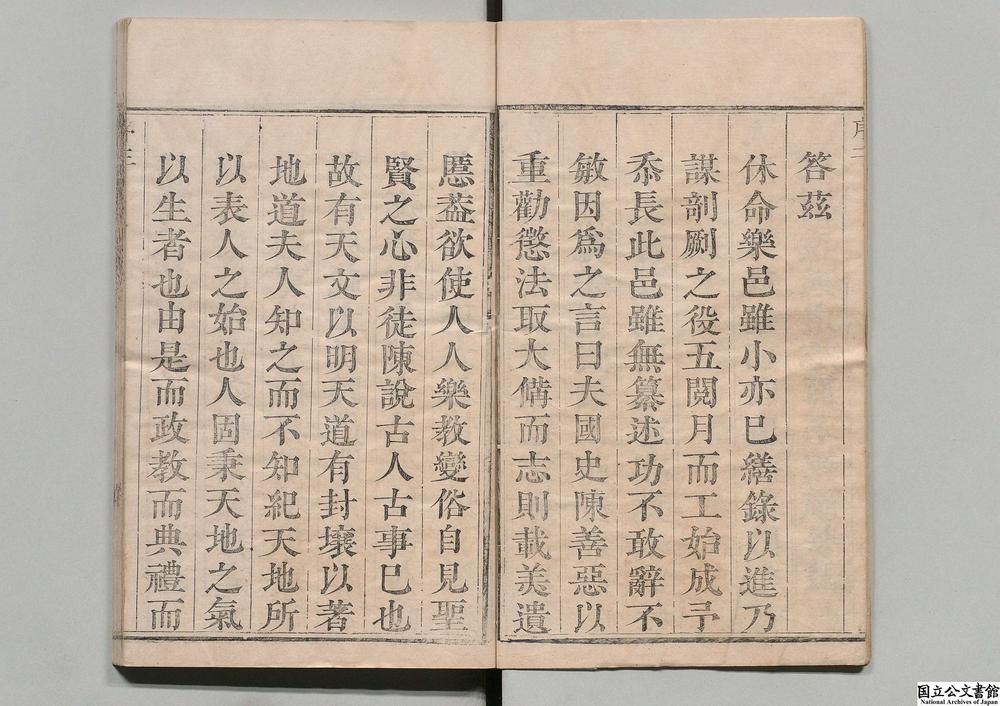 序二
答茲
休命樂邑雖小亦已繕錄以進乃
謀剞劂之役五閱月而工始成予
忝長此邑雖無纂述功不敢辭不
敏因爲之言曰夫國史陳善惡以
重勸懲法取大備而志則載美遺
慝葢欲使人人樂教變俗自見聖
賢之心非徒陳說古人古事已也
故有天文以明天道有封壤以著
地道夫人知之而不知紀天地所
以表人之始也人固秉天地之氣
以生者也由是而政教而典禮而
序三
国立公文書館
National Archives of Japan